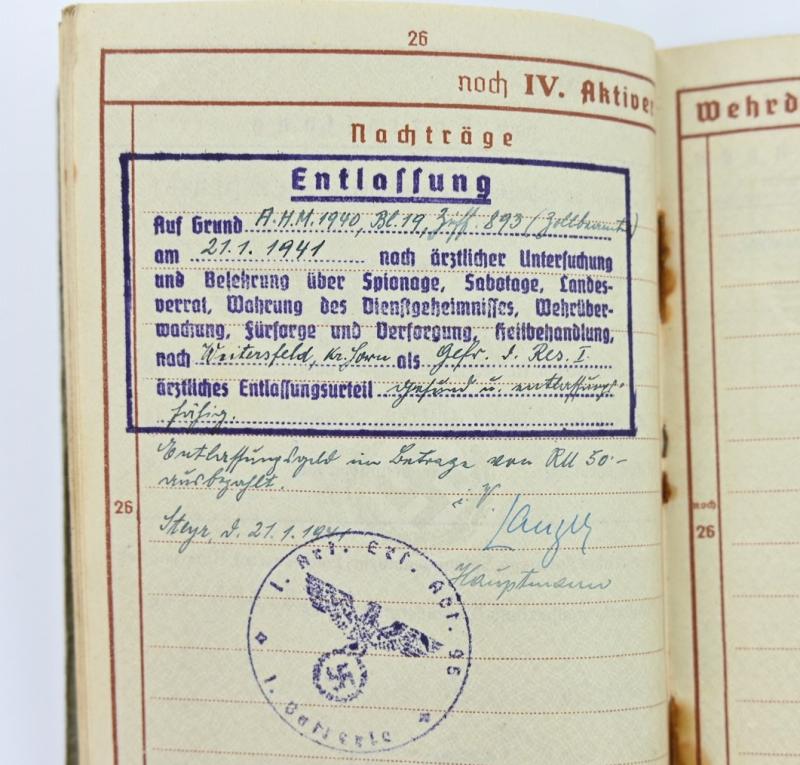 26
noch IV. Aktiver
Wehrd
Nachträge
Entlassung
Auf Grund A.H.M. 1940, Bl. 19, Ziff. 893 (Zollbeamte)
am 21.1.1941 nach ärztlicher Untersuchung
und Belehrung über Spionage, Sabotage, Landes-
verrat, Wahrung des Dienstgeheimnisses, Wehrüber-
wachung, Fürsorge und Versorgung, Heilbehandlung,
nach Weitersfeld, Kr. Horn als Gefr. d. Res. I.
ärztliches Entlassungsurteil gesund u. entlassungs-
fähig.
Entlassungsgeld im Betrage von RM 50.-
ausbezahlt.
i. V.
26
Steyr, d. 21.1.1941
Hauptmann
I. Art. Ers. Abt. 96
noch
26